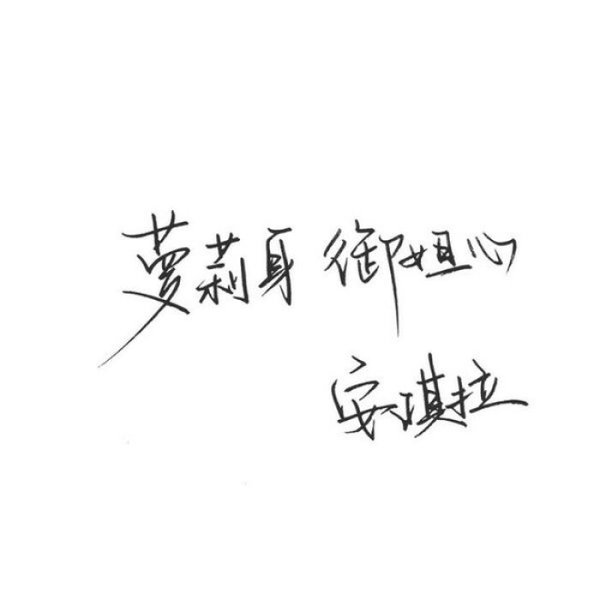 萝莉身 御姐心
安琪拉